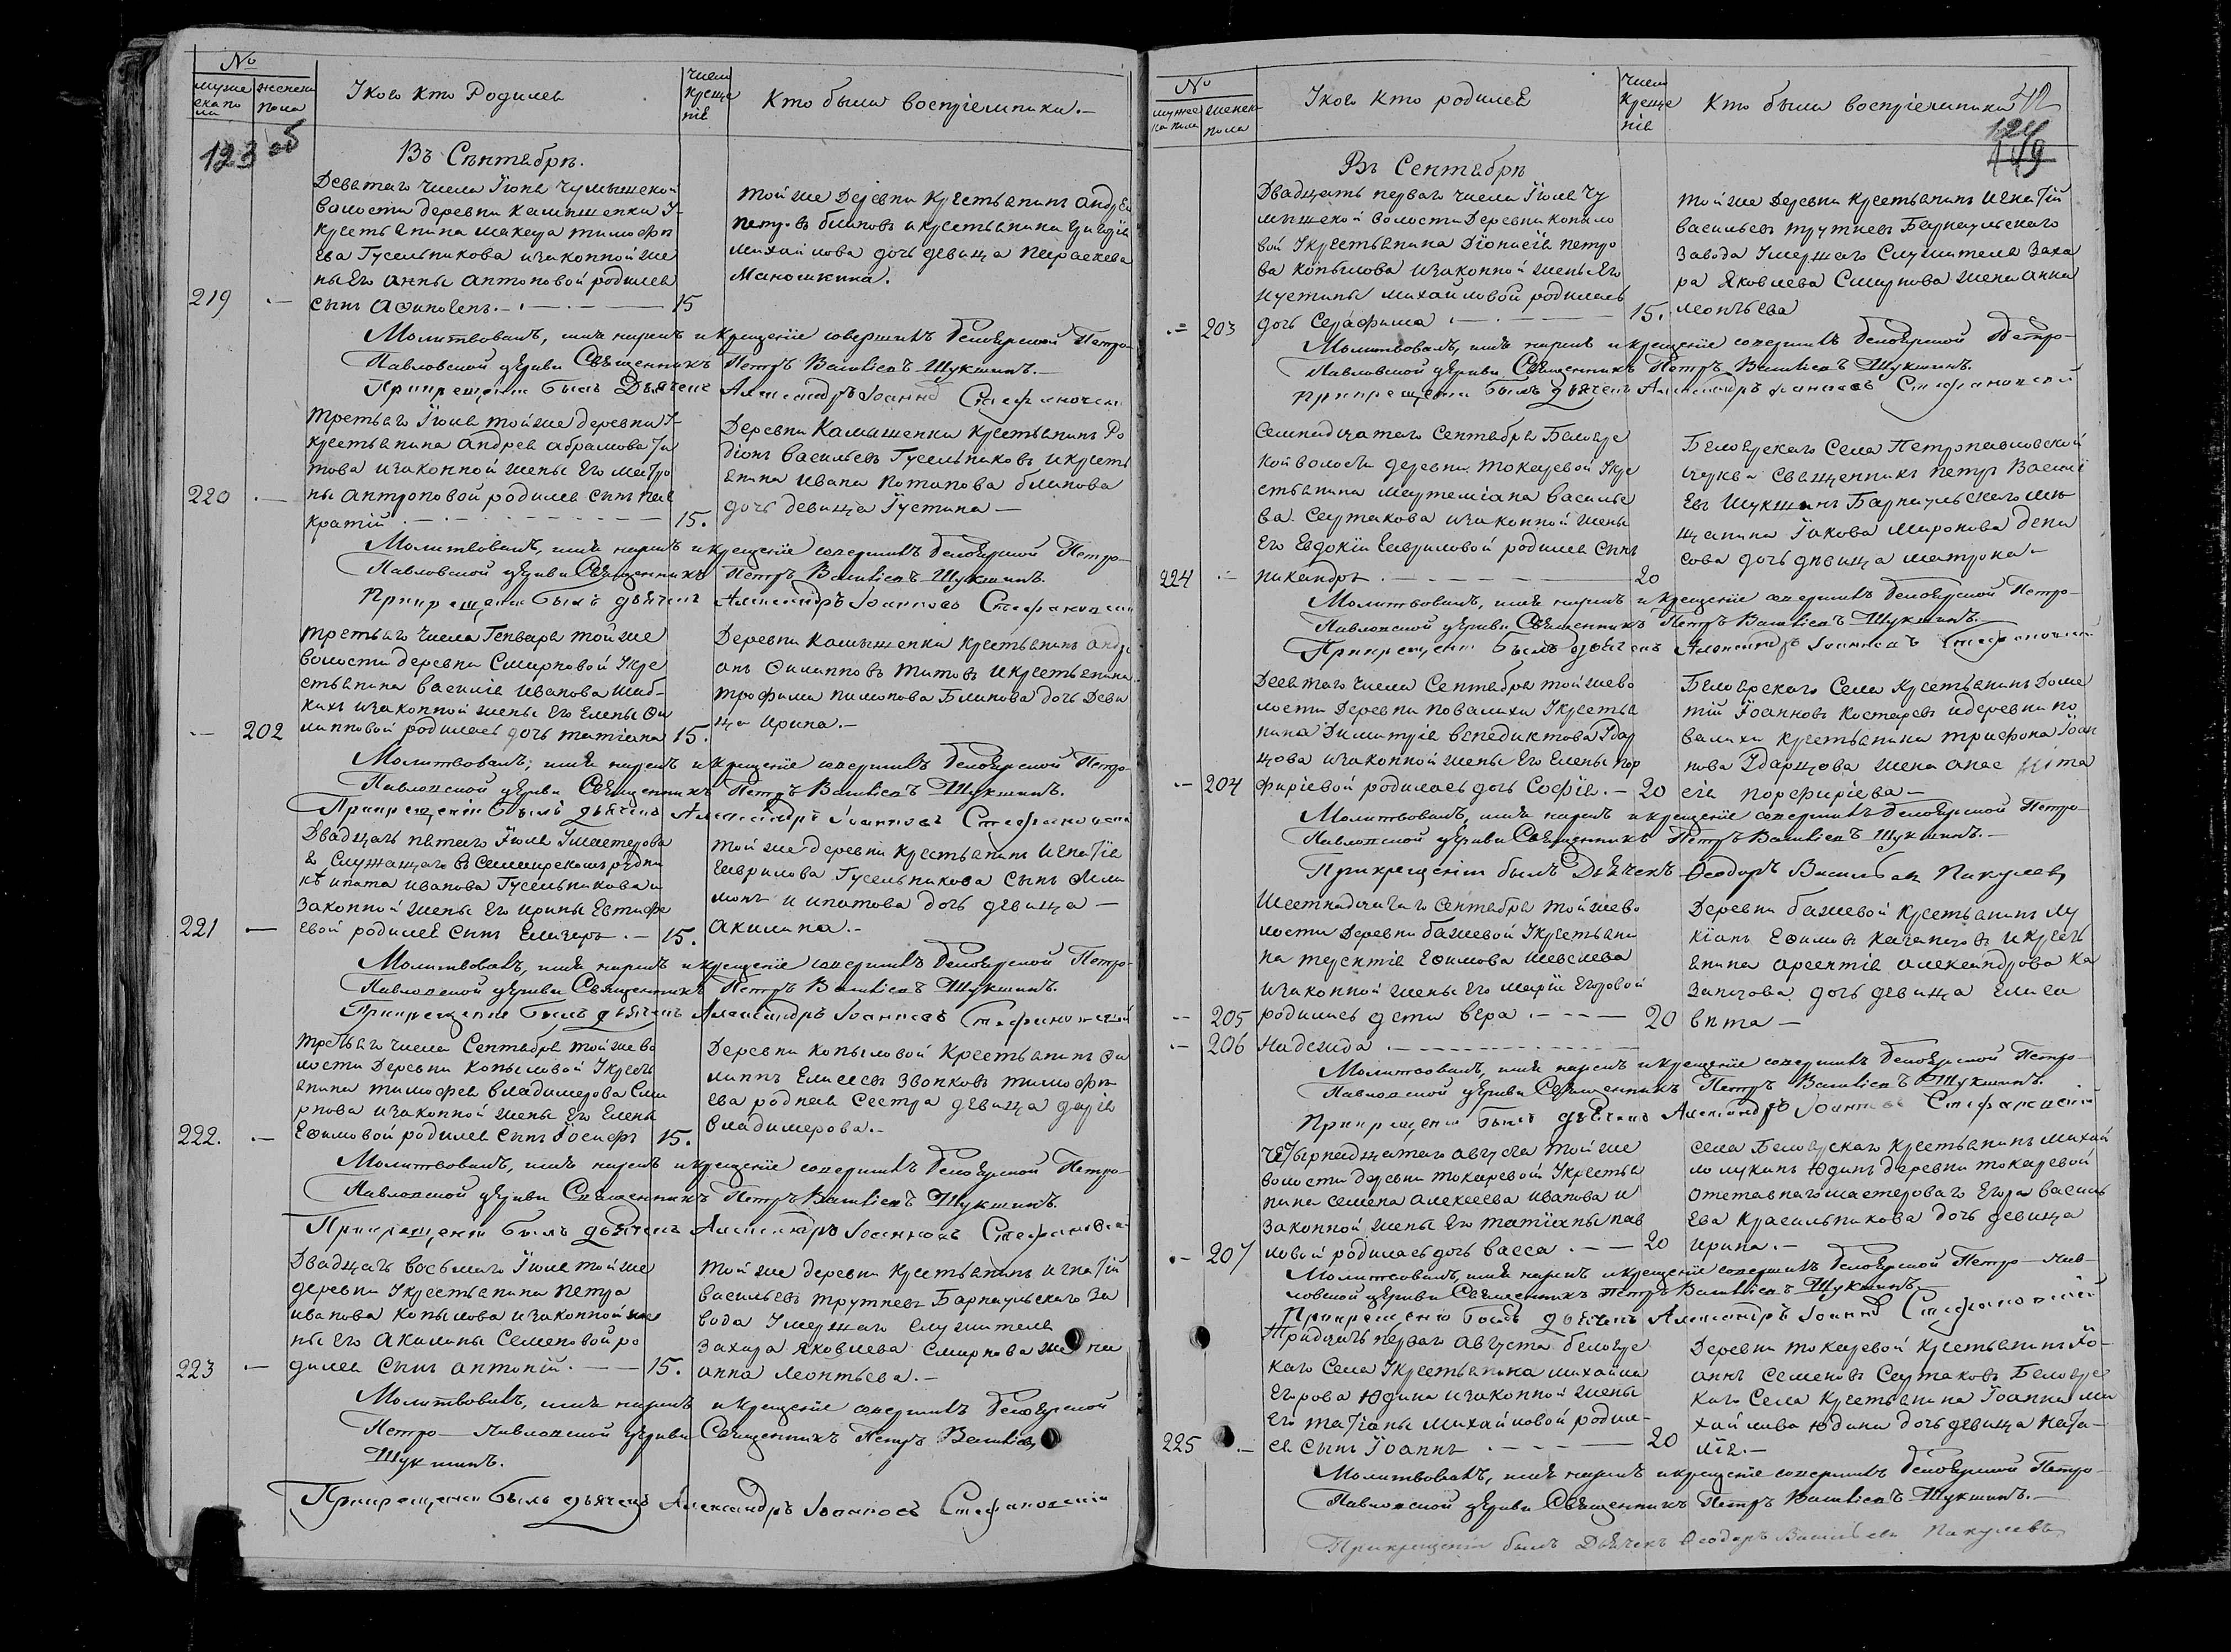 №
мужеска пола
женска пола
У кого кто Родился
Число крещенія
Кто были воспріемники.—
123 об
Въ Сентябрѣ.
Девятаго числа Іюня Чумышской
волости деревни Камышенки у
крестьянина Тимофѣ
ева Гусельникова и законной же
ны его Анны Антоновой родился
219 — сынъ Афиногенъ. — 15
той же деревни крестьянинъ Андрей
Петровъ Блиновъ и крестьянина
Михайлова дочь девица Параскева
Манохина.
Молитвовалъ, имя нарекъ и крещеніе совершилъ Белоярской Петро-
Павловской церкви Священникъ Петръ Васильевъ Шукшинъ.—
При крещеніи былъ Дьячекъ Александръ Іоанновъ Стефановскій
третьяго Іюля той же деревни у
крестьянина Андрея Абрамова Ти
това и законной жены его Матро
220 — ны Антроповой родился сынъ Пан
кратій — 15.
Деревни Камышенки крестьянинъ Ро
діонъ Васильевъ Гусельниковъ и кресть
янина Ивана Потапова Блинова
дочь девица Іустина —
Молитвовалъ, имя нарекъ и крещеніе совершилъ Белоярской Петро-
Павловской церкви Священникъ Петръ Васильевъ Шукшинъ.
При крещеніи былъ дьячекъ Александръ Іоанновъ Стефановскій
третьяго числа Генваря той же
волости деревни Смирновой у кре
стьянина Василія Иванова
и законной жены его Елены Фи
— 202 липповой родилась дочь Татіана 15.
Деревни Камышенки крестьянинъ
Филипповъ Титовъ и крестьянина
Трофима Блинова дочь деви
ца Ирина.—
Молитвовалъ, имя нарекъ и крещеніе совершилъ Белоярской Петро-
Павловской церкви Священникъ Петръ Васильевъ Шукшинъ.
При крещеніи былъ дьячекъ Александръ Іоанновъ Стефановскій
Двадцать пятаго Іюля у мастерова
го служащаго в рудни
кѣ Ипата Иванова Гусельникова и
законной жены его Ирины Евтифе
221 — евой родился сынъ — 15.
той же деревни крестьянинъ Игнатія
Гаврилова Гусельникова сынъ Фили
монъ и Ипатова дочь девица —
Акилина.—
Молитвовалъ, имя нарекъ и крещеніе совершилъ Белоярской Петро-
Павловской церкви Священникъ Петръ Васильевъ Шукшинъ.
При крещеніи былъ дьячекъ Александръ Іоанновъ Стефановскій
третьяго числа Сентября той же во
лости деревни Копыловой у кресть
янина Тимофея Владимерова Сми
рнова и законной жены его Елены
222. — Ефимовой родился сынъ Іосифъ 15.
Деревни Копыловой крестьянинъ Фи
липпъ Елисеевъ Звонковъ Тимофѣ
ева родная сестра девица Дарія
Владимерова.—
Молитвовалъ, имя нарекъ и крещеніе совершилъ Белоярской Петро-
Павловской церкви Священникъ Петръ Васильевъ Шукшинъ.
При крещеніи былъ дьячекъ Александръ Іоанновъ Стефановскій
Двадцать восьмаго Іюля той же
деревни у крестьянина Петра
Иванова Копылова и законной же
ны его Акилины Семеновой ро
223 — дился сынъ Антоній. — 15.
той же деревни крестьянинъ Игнатій
Васильевъ Трутневъ Барнаульскаго за
вода умершаго служителя
Захара Яковлева Смирнова жена
Анна Леонтьева.—
Молитвовалъ, имя нарекъ и крещеніе совершилъ Белоярской
Петро-Павловской церкви Священникъ Петръ Васильевъ
Шукшинъ.
При крещеніи былъ дьячекъ Александръ Іоанновъ Стефановскій
№
мужеска пола
женска пола
У кого кто родился
Число крещенія
Кто были воспріемники
124
Въ Сентябрѣ
Двадцать перваго числа Іюля Чу
мышской волости деревни Копыло
вой у крестьянина Діонисія Петро
ва Копылова и законной жены его
Иустины Михайловой родилась
— 203 дочь Серафима — 15.
той же деревни крестьянинъ Игнатій
Васильевъ Трутневъ Барнаульскаго
завода умершаго служителя Заха
ра Яковлева Смирнова жена Анна
Леонтьева
Молитвовалъ, имя нарекъ и крещеніе совершилъ Белоярской Петро-
Павловской церкви Священникъ Петръ Васильевъ Шукшинъ.
При крещеніи былъ дьячекъ Александръ Іоанновъ Стефановскій
Семнадцатаго Сентября Белояр
ской волости деревни Токаревой у кре
стьянина Мартеміана Василье
ва Саутакова и законной жены
его Евдокіи Гавриловой родился сынъ
224 — Никандръ — 20
Белоярскаго села Петропавловской
церкви Священникъ Петръ Василі
евъ Шукшинъ Барнаульскаго мѣ
щанина Іакова Миронова Дени
сова дочь девица Матрона.—
Молитвовалъ, имя нарекъ и крещеніе совершилъ Белоярской Петро-
Павловской церкви Священникъ Петръ Васильевъ Шукшинъ.
При крещеніи былъ дьячекъ Александръ Іоанновъ Стефановскій
Девятаго числа Сентября той же во
лости деревни Повалихи у крестья
нина Димитрія Венедиктова Удар
цова и законной жены его Елены Пор
— 204 фиріевой родилась дочь Софія. — 20
Белоярскаго села крестьянинъ Доме
тій Іоанновъ Костаревъ и деревни По
валихи крестьянина Трифона Іоан
нова Ударцова жена Анас та
сія Порфиріева —
Молитвовалъ, имя нарекъ и крещеніе совершилъ Белоярской Петро-
Павловской церкви Священникъ Петръ Васильевъ Шукшинъ.—
При крещеніи былъ Дьячекъ Ѳеодоръ Васильевъ Пикулевъ
Шестнадцатаго Сентября той же во
лости деревни Бажевой у крестьяни
на Терентія Ефимова Шевелева
и законной жены его Маріи Егоровой
— 205 родились дети Вера — 20
— 206 Надежда —
Деревни Бажевой крестьянинъ Лу
кіанъ Ефимовъ и кресть
янина Арсентія Александрова Ка
занцова дочь девица Елиса
вѣта —
Молитвовалъ, имя нарекъ и крещеніе совершилъ Белоярской Петро-
Павловской церкви Священникъ Петръ Васильевъ Шукшинъ.
При крещеніи былъ дьячекъ Александръ Іоанновъ Стефановскій
Четырнадцатаго Августа той же
волости деревни Токаревой у крестья
нина Семена Алексеева Иванова и
законной жены его Татіаны Пав
— 207 ловой родилась дочь Васса — 20
села Белоярскаго крестьянинъ Михай
ло Лукинъ Юдинъ деревни Токаревой
отставнаго мастероваго Егора Василь
ева Красильникова дочь девица
Ирина.—
Молитвовалъ, имя нарекъ и крещеніе совершилъ Белоярской Петро-Пав-
ловской церкви Священникъ Петръ Васильевъ Шукшинъ.—
При крещеніи былъ дьячекъ Александръ Іоанновъ Стефановскій
Тридцать перваго Августа Белояр
скаго села у крестьянина Михайла
Егорова Юдина и законной жены
его Татіаны Михайловой родил-
225 — ся сынъ Іоаннъ — 20
Деревни Токаревой крестьянинъ Іо-
аннъ Семеновъ Саутаковъ Белояр
скаго села крестьянина Іоанна Ми
хайлова Юдина дочь девица Ната-
лія.—
Молитвовалъ, имя нарекъ и крещеніе совершилъ Белоярской Петро-
Павловской церкви Священникъ Петръ Васильевъ Шукшинъ.—
При крещеніи былъ Дьячекъ Ѳеодоръ Васильевъ Пикулевъ